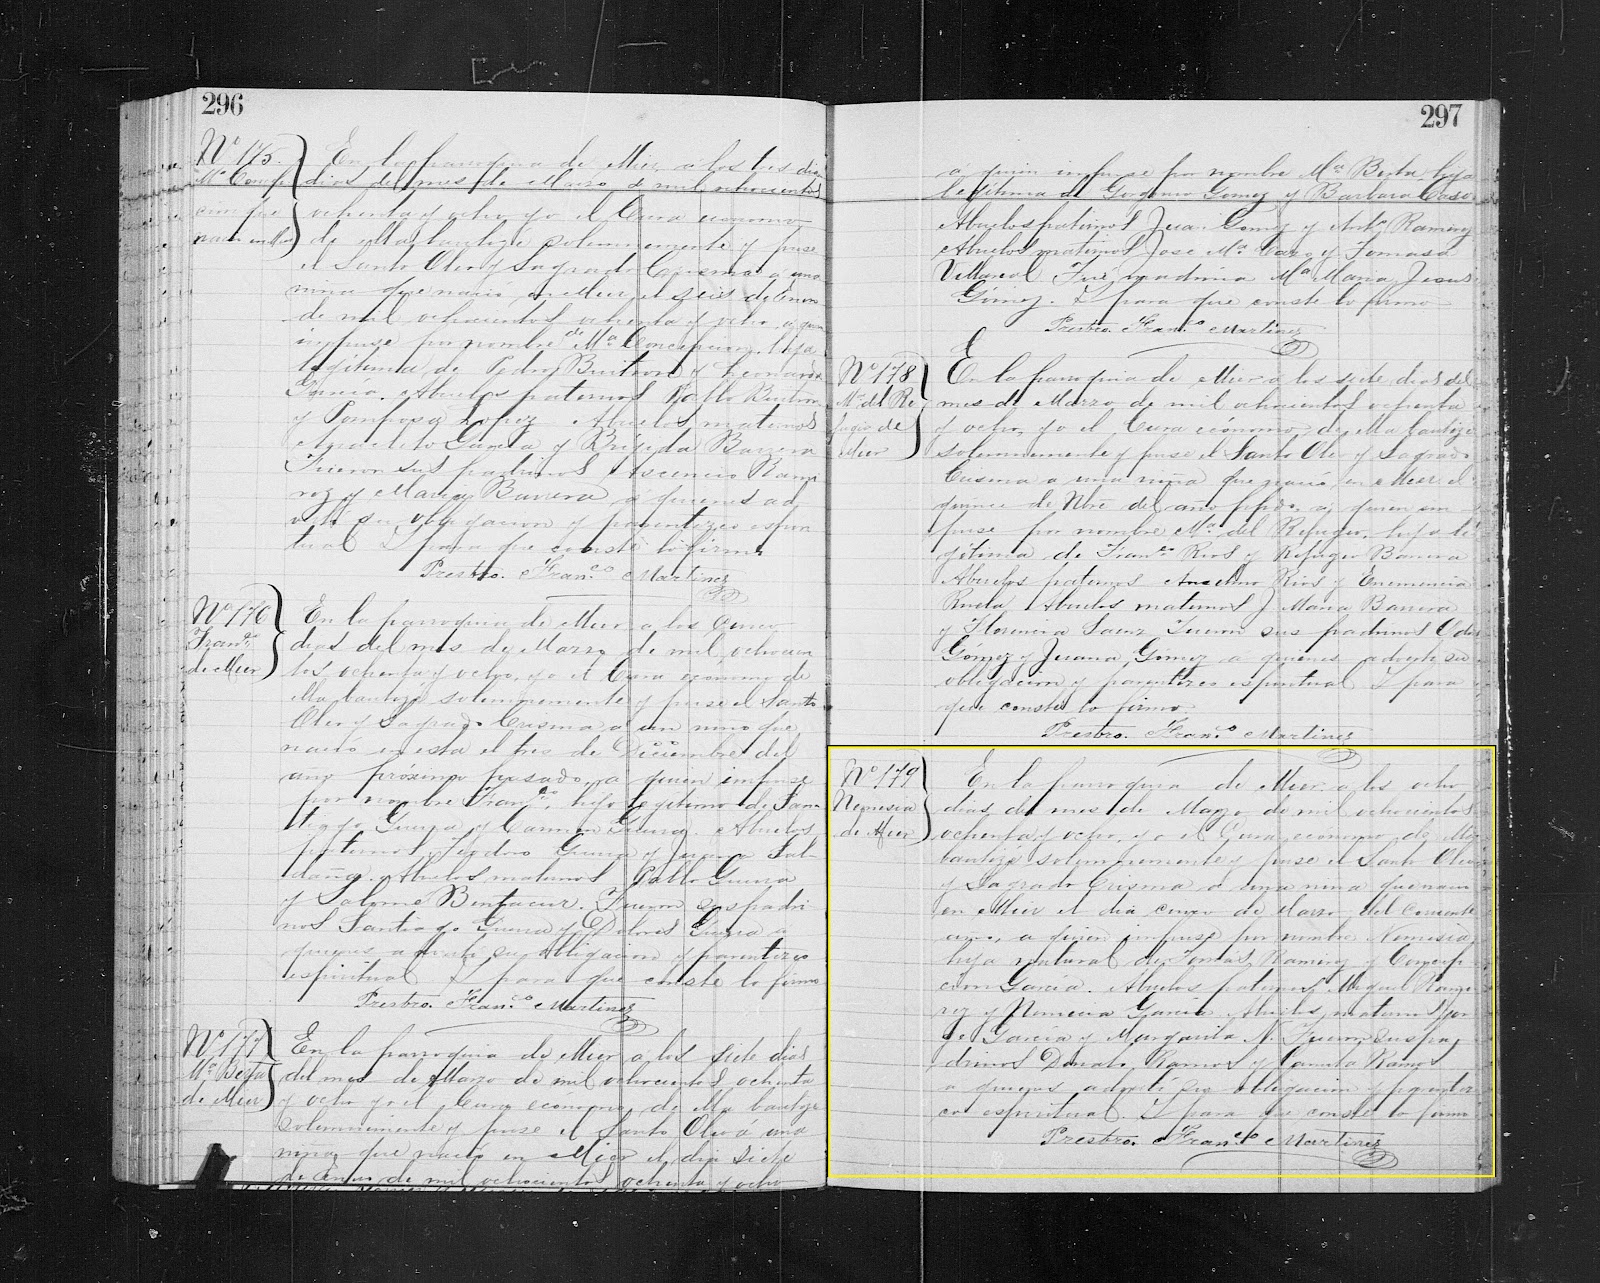 296
Nº 175.
Mª Concep
cion que
nacio en Mier
En la parroquia de Mier a los tres dias
dias del mes de Marzo de mil ochocientos
ochenta y ocho, yo el Cura economo
de ella bautize solemnemente y puse
el Santo Oleo y Sagrado Crisma a una
niña que nació en Mier el seis de Enero
de mil ochocientos ochenta y ocho, a quien
impuse por nombre de Mª Concepcion, hija
legitima de Pedro Buitron y Leonarda
Garcia. Abuelos paternos Pablo Buitron
y Pomposa Lopez. Abuelos maternos
Anacleto Garcia y Brigida Barrera
Fueron sus padrinos Ascencio Rami
rez y Maria Barrera a quienes ad
verti su obligacion y parentezco espiri
tual Y para que conste lo firmo
Presbro. Franco Martinez
Nº 176
Franco
de Mier
En la parroquia de Mier a los cinco
dias del mes de Marzo de mil ochocien
tos ochenta y ocho, yo el Cura economo de
ella bautize solemnemente y puse el Santo
Oleo y Sagrado Crisma a un niño que
nació en esta el tres de Diciembre del
año próximo pasado, a quien impuse
por nombre Franco, hijo legitimo de San
tiago Guerra y Carmen Guerra. Abuelos
paternos Teodoro Guerra y Juana Sal
daña. Abuelos maternos Pablo Guerra
y Salome Bentacur. Fueron sus padri
nos Santiago Guerra y Dolores Guerra a
quienes adverti su obligacion y parentezco
espiritual Y para que conste lo firmo
Presbro. Franco Martinez
Nº 177
Mª Berta
de Mier
En la parroquia de Mier a los siete dias
del mes de Marzo de mil ochocientos ochenta
y ocho yo el Cura económo de ella bautize
solemnemente y puse el Santo Oleo á una
niña que nació en Mier el dia siete
de Enero de mil ochocientos ochenta y ocho
297
a quien impuse por nombre Mª Berta hija
legitima de Gorgonio Gomez y Barbara Caso
Abuelos paternos Juan Gomez y Antª Ramirez
Abuelos maternos Jose Mª Cazo y Tomasa
Villareal Fué madrina Mª Maria Jesus
Gómez. Y para que conste lo firmo
Presbro. Franco Martinez
Nº 178
Mª del Re
fugio de
Mier
En la parroquia de Mier a los siete dias del
mes de Marzo de mil ochocientos ochenta
y ocho, yo el Cura economo de ella bautize
solemnemente y puse el Santo Oleo y Sagrado
Crisma a una niña que nació en Mier el
quince de Nbre del año ppdo. a quien im
puse por nombre Mª del Refugio, hija le
gitima de Franco Rios y Refugio Barrera
Abuelos paternos Anselmo Rios y Enemencia
Abuelos maternos J Maria Barrera
y Florencia Saenz Fueron sus padrinos
Gómez y Juana Gómez a quienes adverti su
obligacion y parentezco espiritual Y para
que conste lo firmo
Presbro. Franco Martinez
Nº 179
Nemesia
de Mier
En la parroquia de Mier a los ocho
dias del mes de Marzo de mil ochocientos
ochenta y ocho, yo el Cura economo de ella
bautize solemnemente y puse el Santo Oleo
y Sagrado Crisma a una niña que nacio
en Mier el dia cinco de Marzo del corriente
año, a quien impuse por nombre Nemesia
hija natural de Tomas Ramirez y Concep
cion Garcia. Abuelos paternos Miguel Rami
rez y Nemecia Garcia Abuelos maternos Jor
ge Garcia y Margarita N. Fueron sus pa
drinos Donato Ramos y Camila Ramos
a quienes adverti su obligacion y parentez
co espiritual. Y para que conste lo firmo
Presbro. Franco Martinez